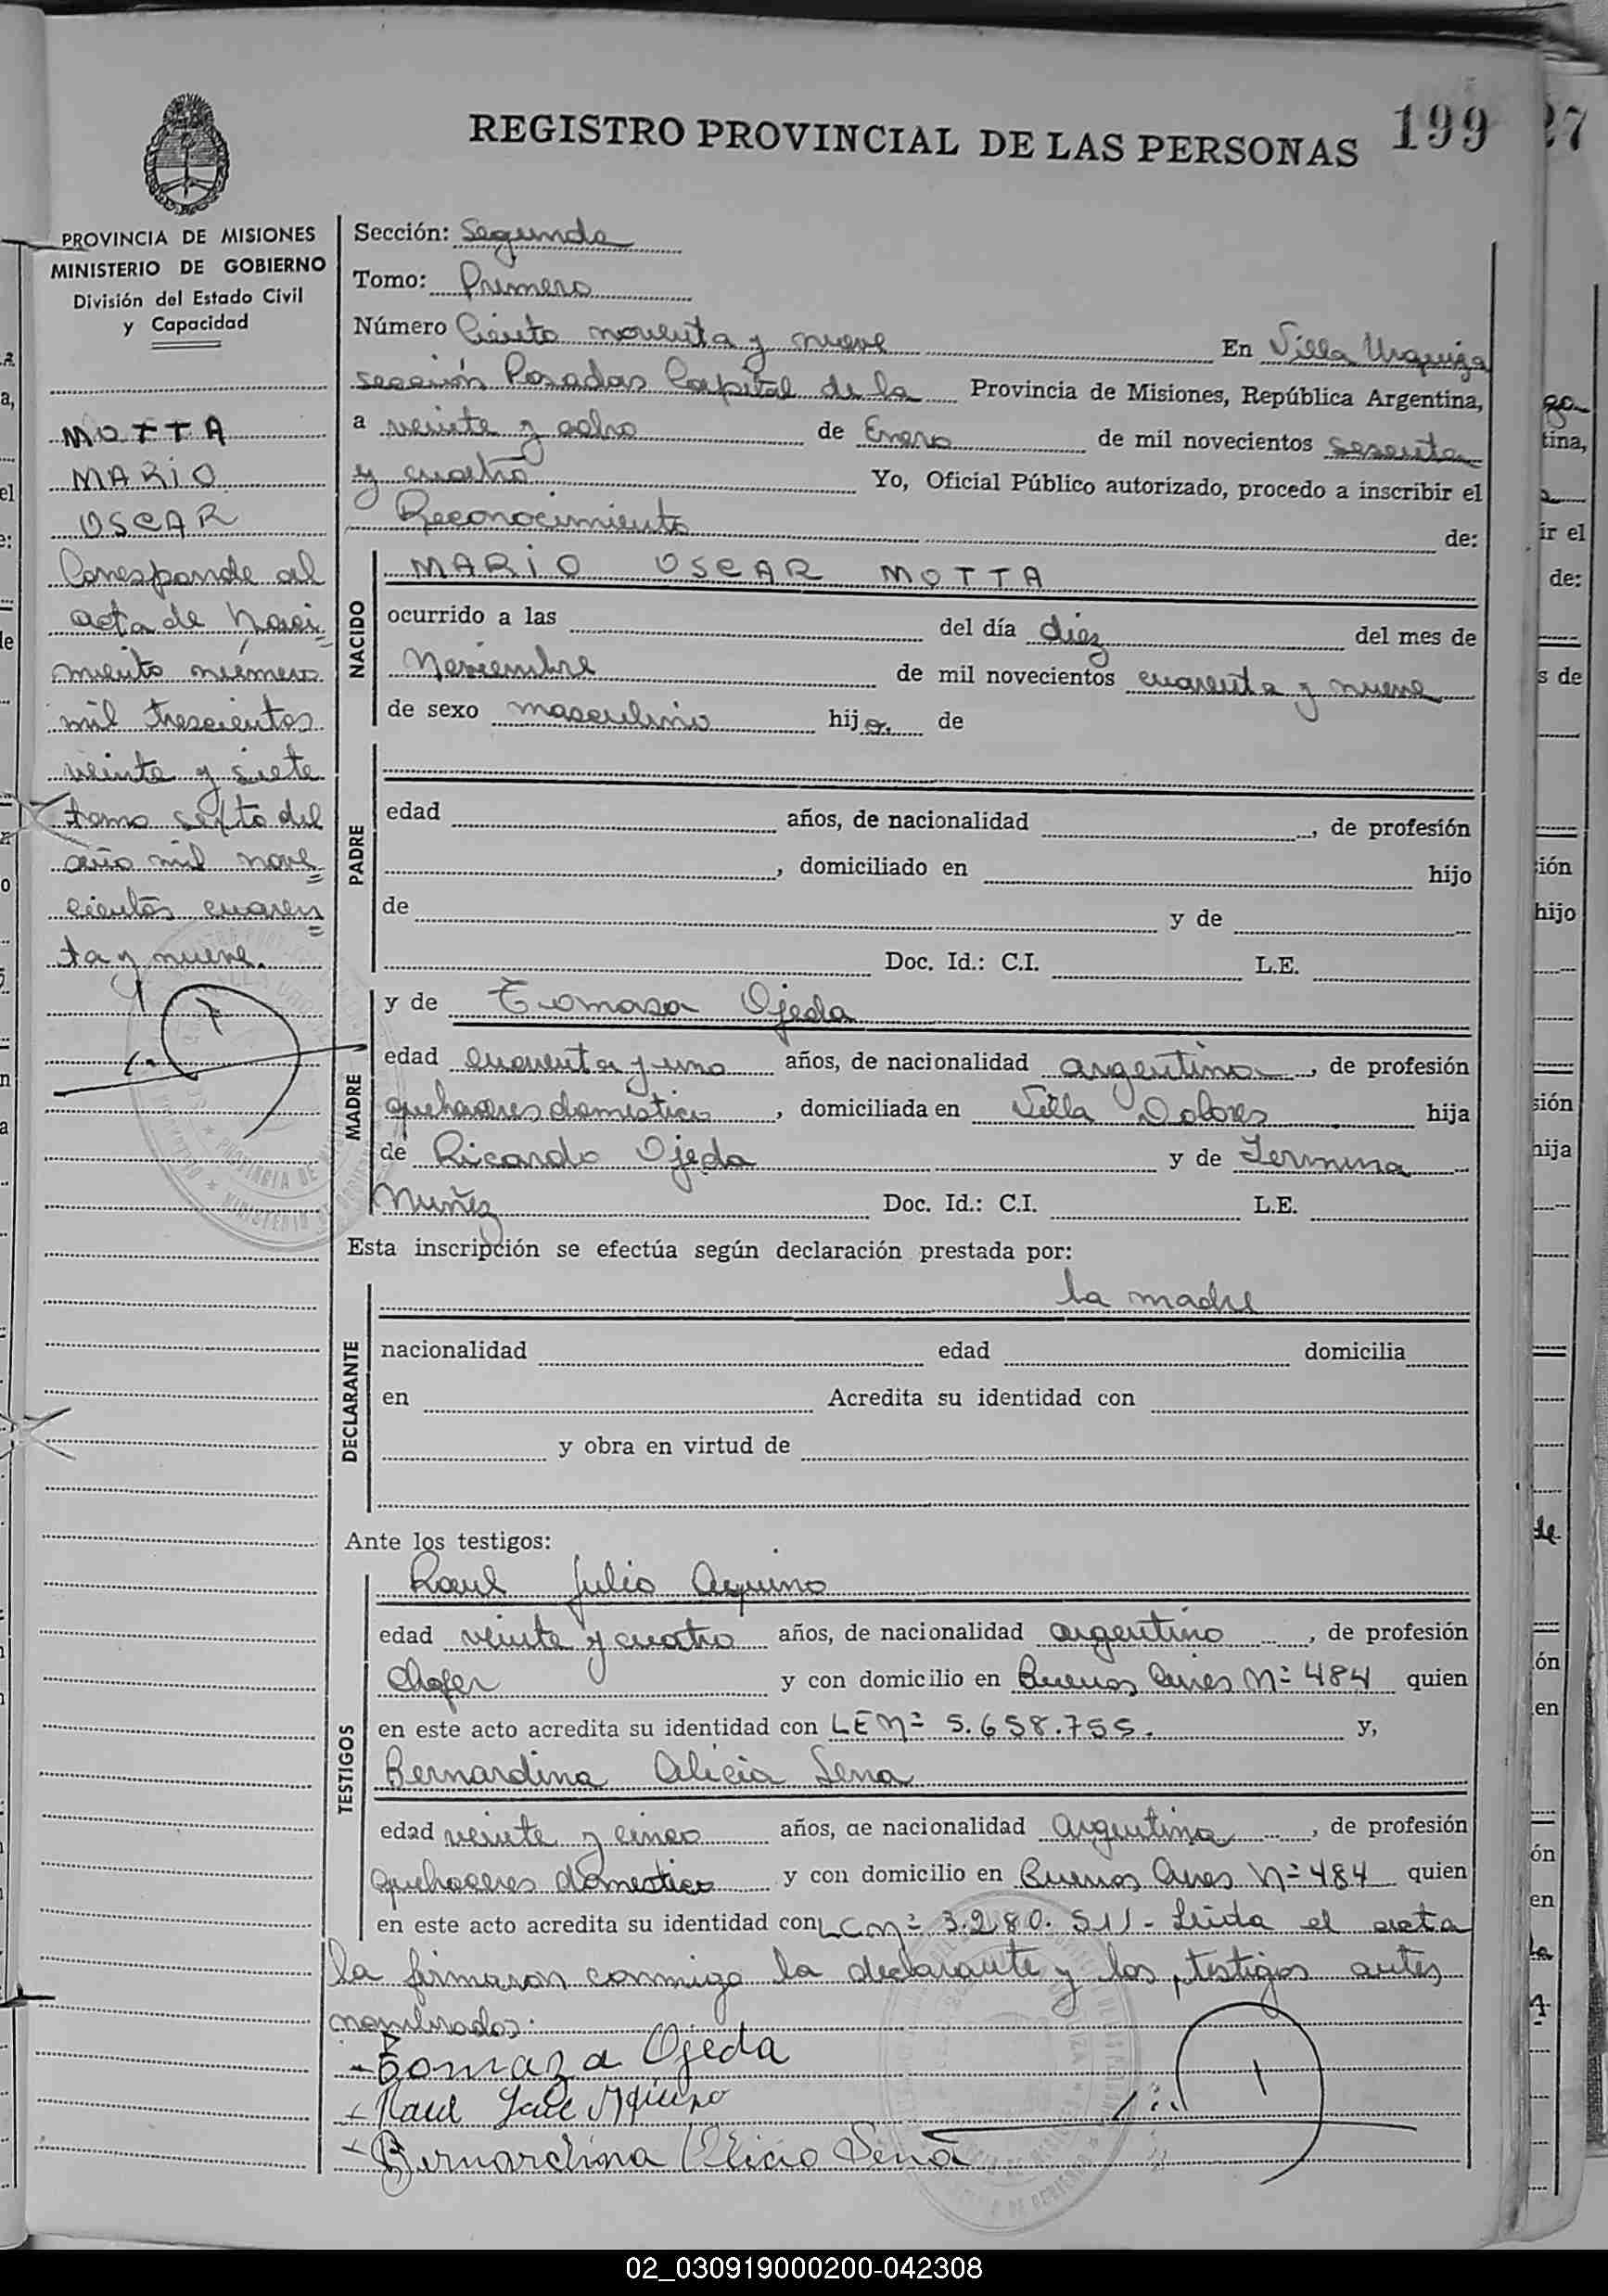 REGISTRO PROVINCIAL DE LAS PERSONAS 199
27
PROVINCIA DE MISIONES
MINISTERIO DE GOBIERNO
División del Estado Civil
y Capacidad
MOTTA
MARIO
OSCAR
Corresponde al
acta de Naci
miento número
mil trescientos
veinte y siete
tomo sexto del
año mil nove
cientos cuaren
ta y nueve.
Sección: Segunda
Tomo: Primero
Número Ciento noventa y nueve En Villa Urquiza
sección Posadas Capital de la Provincia de Misiones, República Argentina,
a veinte y ocho de Enero de mil novecientos sesenta
y cuatro Yo, Oficial Público autorizado, procedo a inscribir el
Reconocimiento de:
NACIDO
MARIO OSCAR MOTTA
ocurrido a las del día diez del mes de
Noviembre de mil novecientos cuarenta y nueve
de sexo masculino hijo de
PADRE
edad años, de nacionalidad , de profesión
, domiciliado en hijo
de y de
Doc. Id.: C.I. L.E.
MADRE
y de Tomasa Ojeda
edad cuarenta y uno años, de nacionalidad argentina, de profesión
quehaceres domestico, domiciliada en Villa Dolores hija
de Ricardo Ojeda y de
Nuñez Doc. Id.: C.I. L.E.
Esta inscripción se efectúa según declaración prestada por:
DECLARANTE
la madre
nacionalidad edad domicilia
en Acredita su identidad con
y obra en virtud de
Ante los testigos:
TESTIGOS
Raul Julio Aquino
edad veinte y cuatro años, de nacionalidad argentino, de profesión
Chofer y con domicilio en Buenos Aires Nº 484 quien
en este acto acredita su identidad con LE Nº 5.658.755. y,
Bernardina Alicia Sena
edad veinte y cinco años, de nacionalidad Argentina, de profesión
Quehaceres domestico y con domicilio en Buenos Aires Nº 484 quien
en este acto acredita su identidad con LC Nº 3.280.511- Leida el acta
la firmaron conmigo la declarante y los testigos antes
nombrados:
- Tomaza Ojeda
Raul Julio Aquino
Bernardina Alicia Sena
02_030919000200-042308